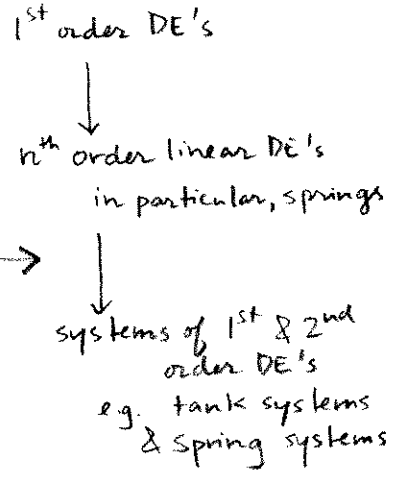 1st order DE's
nth order linear DE's
in particular, springs
systems of 1st & 2nd
order DE's
e.g. tank systems
& spring systems